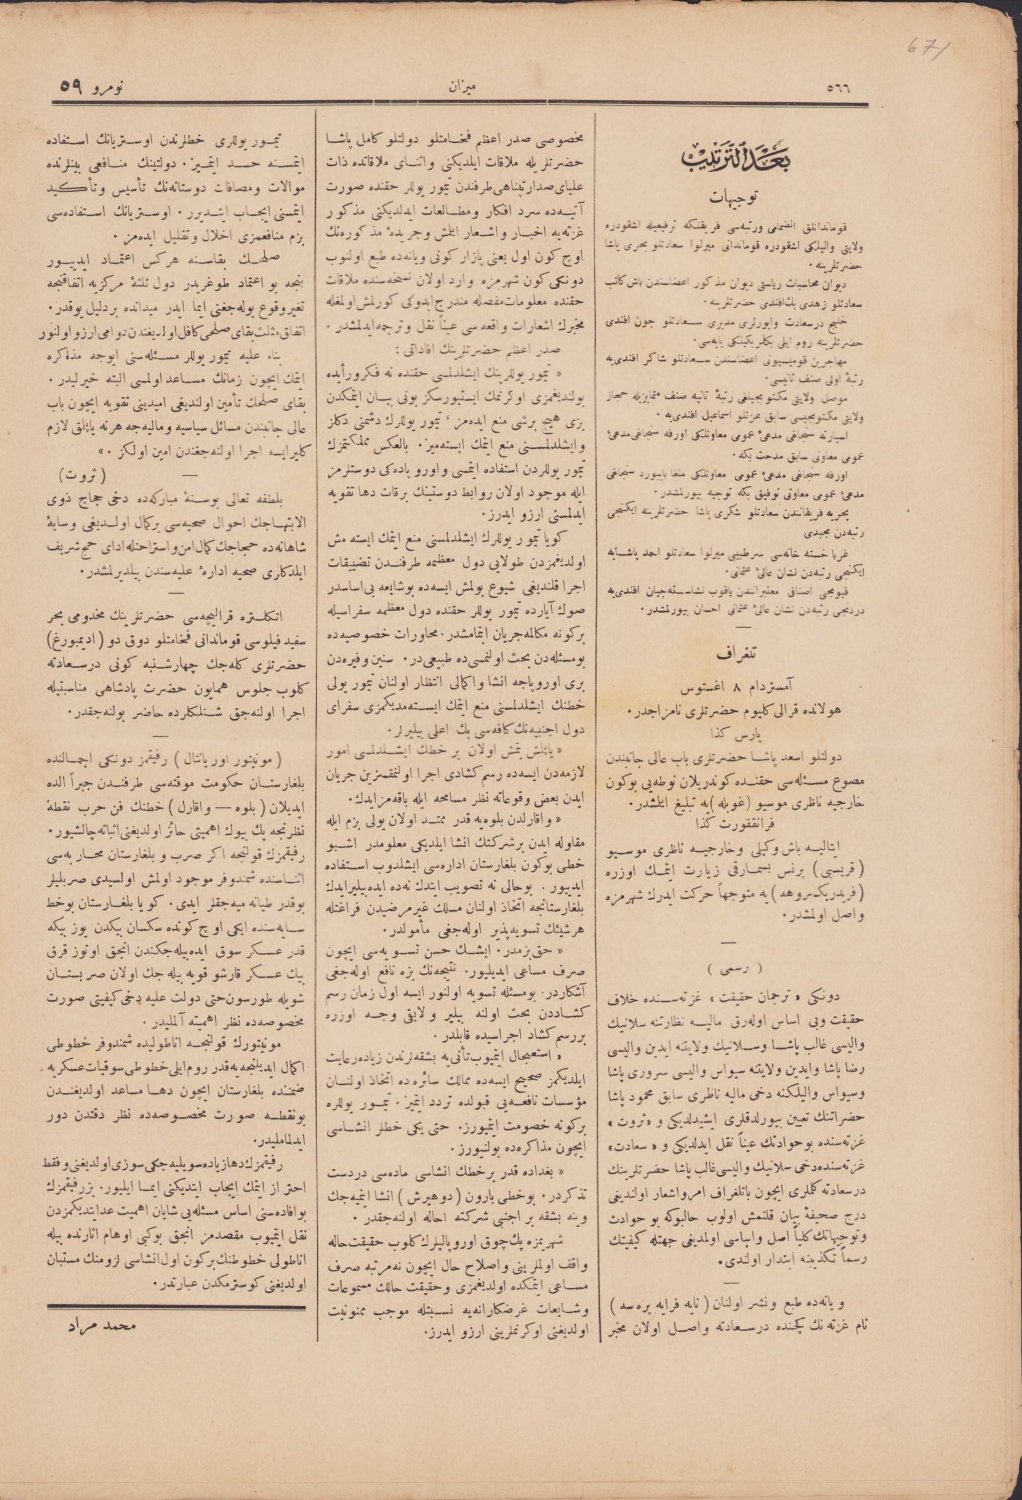 671
٥٦٦
ميزان
نومرو ٥٩
بعد الترتيب
توجيهات
قوماندانلق انضمامی ورتبه‌سی فريقلكه ترفيعيله اشقودره
ولايتی واليلكی اشقودره قوماندانی ميرلوا سعادتلو بحری پاشا
حضرتلرينه .
ديوان محاسبات رياستی ديوان مذكور اعضاسندن باش كاتب
سعادتلو زهدی بك افندی حضرتلرينه .
خليج درسعادت واپورلری مديری سعادتلو جون افندی
حضرتلرينه روم ايلی بكلربكيلكی پايه‌سی .
مهاجرين قوميسيونی اعضاسندن سعادتلو شاكر افندی‌يه
رتبۀ اولی صنف ثانيسی .
موصل ولايتی مكتوبجيلغی رتبۀ ثانيه صنف متمايزيله حجاز
ولايتی مكتوبجيسی سابق عزتلو اسماعيل افندی‌يه .
اسپارته سنجاغی مدعئ عمومی معاونلكی اورفه سنجاغی مدعئ
عمومی معاونی سابق مدحت بكه .
اورفه سنجاغی مدعئ عمومی معاونلكی ملغا بايبورد سنجاغی
مدعئ عمومی معاونی توفيق بكه توجيه بيورلمشدر .
بحريه فريقانندن سعادتلو شكری پاشا حضرتلرينه ايكنجی
رتبه‌دن مجيدی
غربا خسته خانه‌سی سرطبيبی ميرلوا سعادتلو احمد پاشايه
ايكنجی رتبه‌دن نشان عالئ عثمانی .
قيومجی اصنافی معتبرانندن ياقوب افندی‌يه
دردنجی رتبه‌دن نشان عالئ عثمانی احسان بيورلمشدر .
تلغراف
آمستردام ٨ اغستوس
هولانده قرالی كليوم حضرتلری نامزاجدر .
پارس كذا
دولتلو اسعد پاشا حضرتلری باب عالی جانبندن
مصوع مسئله‌سی حقنده كوندريلان نوطه‌يی بوكون
خارجيه ناظری موسيو (غوبله) يه تبليغ ايلمشدر .
فرانقفورت كذا
ايتاليه باش وكيلی وخارجيه ناظری موسيو
(قريسپی) پرنس بسمارقی زيارت ايتمك اوزره
(فريدريكسروهه) يه متوجهاً حركت ايدرك شهرمزه
واصل اولمشدر .
( رسمی )
دونكی « ترجمان حقيقت » غزته‌سنده خلاف
حقيقت وبی اساس اوله‌رق ماليه نظارتنه سلانيك
واليسی غالب پاشا وسلانيك ولايتنه ايدين واليسی
رضا پاشا وايدين ولايتنه سيواس واليسی سروری پاشا
وسيواس واليلكنه دخی ماليه ناظری سابق محمود پاشا
حضراتنك تعيين بيورلدقلری ايشيدلديكی و « ثروت »
غزته‌سنده بوحوادثك عيناً نقل ايدلديكی و « سعادت »
غزته‌سنده دخی سلانيك واليسی غالب پاشا حضرتلرينك
درسعادته كلملری ايچون باتلغراف امر واشعار اولنديغی
درج صحيفۀ بيان قلنمش اولوب حالبوكه بو حوادث
وتوجيهاتك كلياً اصل واساسی اولمديغی جهتله كيفيتك
رسماً تكذيبنه ابتدار اولندی .
ويانه‌ده طبع ونشر اولنان (نايه فرايه پره‌سه)
نام غزته‌نك كچنده درسعادته واصل اولان مخبر
مخصوصی صدر اعظم فخامتلو دولتلو كامل پاشا
حضرتلريله ملاقات ايلديكنی واثنای ملاقاتده ذات
عليای صدارتپناهی طرفندن تيمور يوللر حقنده صورت
آتيه‌ده سرد افكار ومطالعات ايدلديكنی مذكور
غزته‌يه اخبار واشعار ايتمش وجريدۀ مذكوره‌نك
اوچ كون اول يعنی پازار كونی ويانه‌ده طبع اولنوب
دونكی كون شهرمزه وارد اولان نسخه‌سنده ملاقات
حقنده معلومات مفصله مندرج ايدوكی كورلمش اولمغله
مخبرك اشعارات واقعه‌سی عيناً نقل وترجمه ايدلمشدر .
صدر اعظم حضرتلرينك افاداتی :
« تيمور يوللرينك ايشلدلمسی حقنده نه فكر ورأيده
بولنديغمزی اوكرنمك ايستيورسكز بونی بيان ايتمكدن
بزی هيچ برشی منع ايده‌مز ، تيمور يوللرك دشمنی دكلز
وايشلدلمسنی منع ايتمك ايسته‌ميز . بالعكس مملكتمزك
تيمور يوللردن استفاده ايتمسی و اوروپاده‌كی دوستلرمز
ايله موجود اولان روابط دوستينك برقات دها تقويه
ايدلمسنی آرزو ايدرز .
كويا تيمور يوللرك ايشلدلمسنی منع ايتمك ايسته مش
اولديغمزدن طولايی دول معظمه طرفندن تضييقات
اجرا قلنديغی شيوع بولمش ايسه‌ده بوشايعه بی اساسدر
صوك آيارده تيمور يوللر حقنده دول معظمه سفراسيله
بركونه مكالمه جريان ايتمامشدر . محاورات خصوصيه‌ده
بومسئله‌دن بحث اولنمسی‌ده طبيعی‌در . سنين وفيره‌دن
بری اوروپاجه انشا واكمالی انتظار اولنان تيمور يولی
خطنك ايشلدلمسنی منع ايتمك ايسته‌مديكمزی سفرای
دول اجنبيه‌نك كافه‌سی پك اعلی بيليرلر .
« ياپلش بتمش اولان بر خطك ايشلدلمسی امور
لازمه‌دن ايسه‌ده رسم كشادی اجرا اولنمقسزين جريان
ايدن بعض وقوعاته نظر مسامحه ايله باقه‌مزايدك .
« واقارلدن بلوه‌يه قدر ممتد اولان يولی بزم ايله
مقاوله ايدن برشركتك انشا ايلديكی معلومدر اشبو
خطی بوكون بلغارستان اداره‌سی ايشلدوب استفاده
ايدييور . بوحالی نه تصويب ايتدك نه‌ده ايده‌بيلير‌ايدك
بلغارستانجه اتخاذ اولنان مسلك غيرمرضيدن فراغتله
هرشيئك تسويه‌پذير اوله‌جغی مأمولدر .
« حق بزمدر . ايشك حسن تسويه‌سی ايچون
صرف مساعی ايدييورز . نتيجه‌نك بزه نافع اوله‌جغی
آشكاردر . بومسئله تسويه اولنور ايسه اول زمان رسم
كشاددن بحث اولنه بيلير ولايق وجه اوزره
بررسم كشاد اجراسيده قابلدر .
« استعجال ايتميوب تأنی‌يه بشقه‌لرندن زياده رعايت
ايلديكمز صحيح ايسه‌ده ممالك سائره‌ده اتخاذ اولنان
مؤسسات نافعه‌يی قبولده تردد ايتميز . تيمور يوللره
بركونه خصومت ايتميورز . حتی يكی خطلر انشاسی
ايچون مذاكره‌ده بولنيورز .
« بغداده قدر برخطك انشاسی ماده‌سی دردست
تذكردر . بوخطی بارون (دوهيرش) انشا ايتميه‌جك
وينه بشقه بر اجنبی شركته احاله اولنه‌جقدر .
شهريمزه پك چوق اوروپاليلرك كلوب حقيقت حاله
واقف اولملرينی واصلاح حال ايچون نه مرتبه صرف
مساعی ايتمكده اولديغمزی وحقيقت حالك مسموعات
وشايعات غرضكارانه‌يه نسبتله موجب ممنونيت
اولديغنی اوكرنملرينی آرزو ايدرز .
تيمور يوللری خطلرندن اوستريانك استفاده
ايتمسنه حسد ايتميز . دولتينك منافعی بينلرنده
موالات ومصافات دوستانه‌نك تأسيس وتأكيد
ايتمسنی ايجاب ايتديرر . اوستريانك استفاده‌سی
بزم منافعمزی اخلال وتقليل ايده‌مز .
صلحك بقاسنه هركس اعتماد ايدييور
بنجه بو اعتماد طوغريدر دول ثلثۀ مركزيه اتفاقنجه
تغير وقوع بوله‌جغنی ايما ايدر ميدانده بردليل يوقدر .
اتفاق مثلث بقای صلحی كافل اولديغندن دوامی ارزو اولنور
بناء عليه تيمور يوللر مسئله‌سنی ابوجه مذاكره
ايتمك ايچون زمانك مساعد اولمسی البته خيرليدر .
بقای صلحك تأمين اولنديغی اميدينی تقويه ايچون باب
عالی جانبندن مسائل سياسيه وماليه‌جه هر نه ياپلمق لازم
كليرايسه اجرا اولنه‌جغندن امين اولكز . »
( ثروت )
بلطفه تعالی بوسنۀ مباركه‌ده دخی حجاج ذوی
الابتهاجك احوال صحيه‌سی بركمال اولديغی وسايۀ
شاهانه‌ده حجاجك كمال امن واستراحتله ادای حج شريف
ايلدكلری صحيه ادارۀ عليه‌سندن بيلديرلمشدر .
انكلتره قراليچه‌سی حضرتلرينك مخدومی بحر
سفيد فيلوسی قوماندانی فخامتلو دوق دو (اديمبورغ)
حضرتلری كله‌جك چهارشنبه كونی درسعادته
كلوب جلوس همايون حضرت پادشاهی مناسبتيله
اجرا اولنه‌جق شنلكلرده حاضر بولنه‌جقدر .
(مونيتور اوريانتال) رفيقمز دونكی اجمالنده
بلغارستان حكومت موقته‌سی طرفندن جبراً الده
ايديلان (بلوه — واقارل) خطنك فن حرب نقطۀ
نظرنجه پك بيوك اهميتی حائز اولديغنی اثباته چالشيور .
رفيقمزك قولنجه اكر صرب و بلغارستان محاربه‌سی
اثناسنده شمندوفر موجود اولمش اولسيدی صربليلر
بوقدر طيانه ميه‌جقلر ايدی . كويا بلغارستان بوخط
سايه‌سنده ايكی اوچ كونده سكسان بيكدن يوز بيكه
قدر عسكر سوق ايده‌بيله‌جكندن آنجق اوتوز قرق
بيك عسكر قارشو قويه بيله جك اولان صربستان
شويله طورسون حتی دولت عليه دخی كيفيتی صورت
مخصوصه‌ده نظر اهميته آلمليدر .
مونيتورك قولنجه اناطوليده شمندوفر خطوطی
اكمال ايدلنجه‌يه قدر روم ايلی خطوطی سوقيات عسكريه
ضمننده بلغارستان ايچون دها مساعد اولديغندن
بونقطه صورت مخصوصه‌ده نظر دقتدن دور
ايدلماملیدر .
رفيقمزك دها زياده سويليه‌جكی سوزی اولديغی وفقط
احتراز ايتمك ايجاب ايتديكنی ايما ايليور . بز رفيقمزك
بوافاده‌سنی اساس مسئله‌يی شايان اهميت عد ايتديكمزدن
نقل ايتميوب مقصدمز آنجق بوكبی اوهام اثارنده بيله
اناطولی خطوطنك بركون اول انشاسی لزومنك مستبان
اولديغنی كوسترمكدن عبارتدر .
محمد مراد